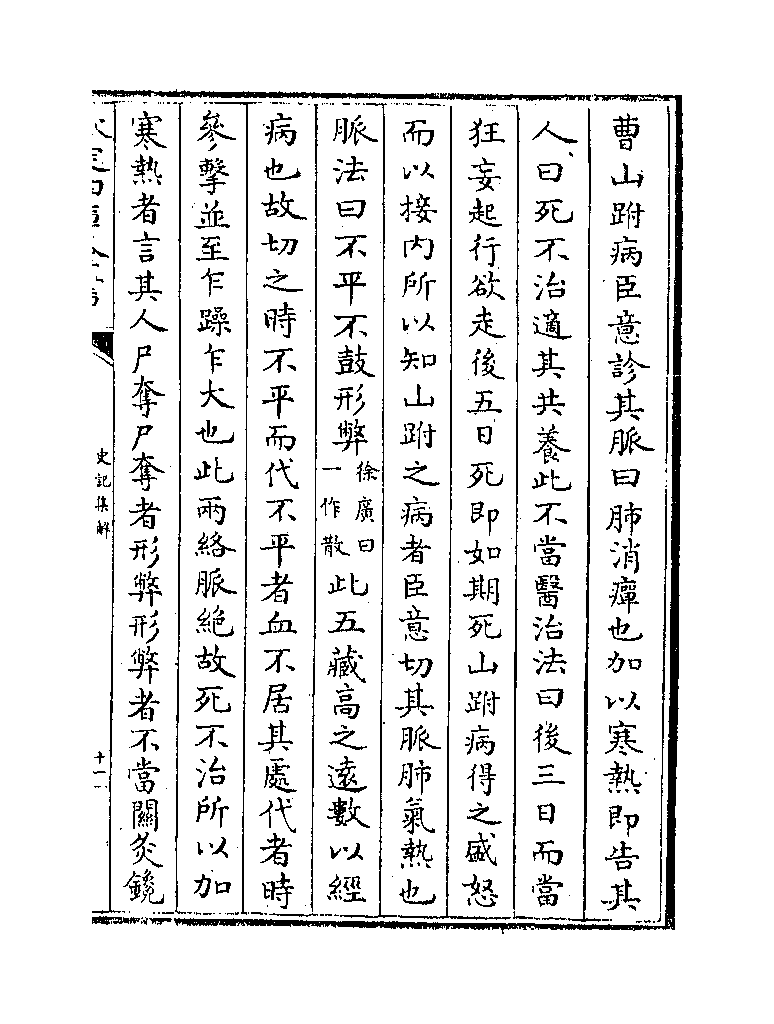 曹山跗病臣意診其脈曰肺消癉也加以寒熱即告其
人曰死不治適其共養此不當醫治法曰後三日而當
狂妄起行欲走後五日死即如期死山跗病得之盛怒
而以接内所以知山跗之病者臣意切其脈肺氣熱也
脈法曰不平不鼓形弊徐廣曰一作散此五藏髙之逺數以經
病也故切之時不平而代不平者血不居其處代者時
參擊並至乍躁乍大也此兩絡脈絶故死不治所以加
寒熱者言其人尸奪尸奪者形弊形弊者不當關灸鑱
史記集解